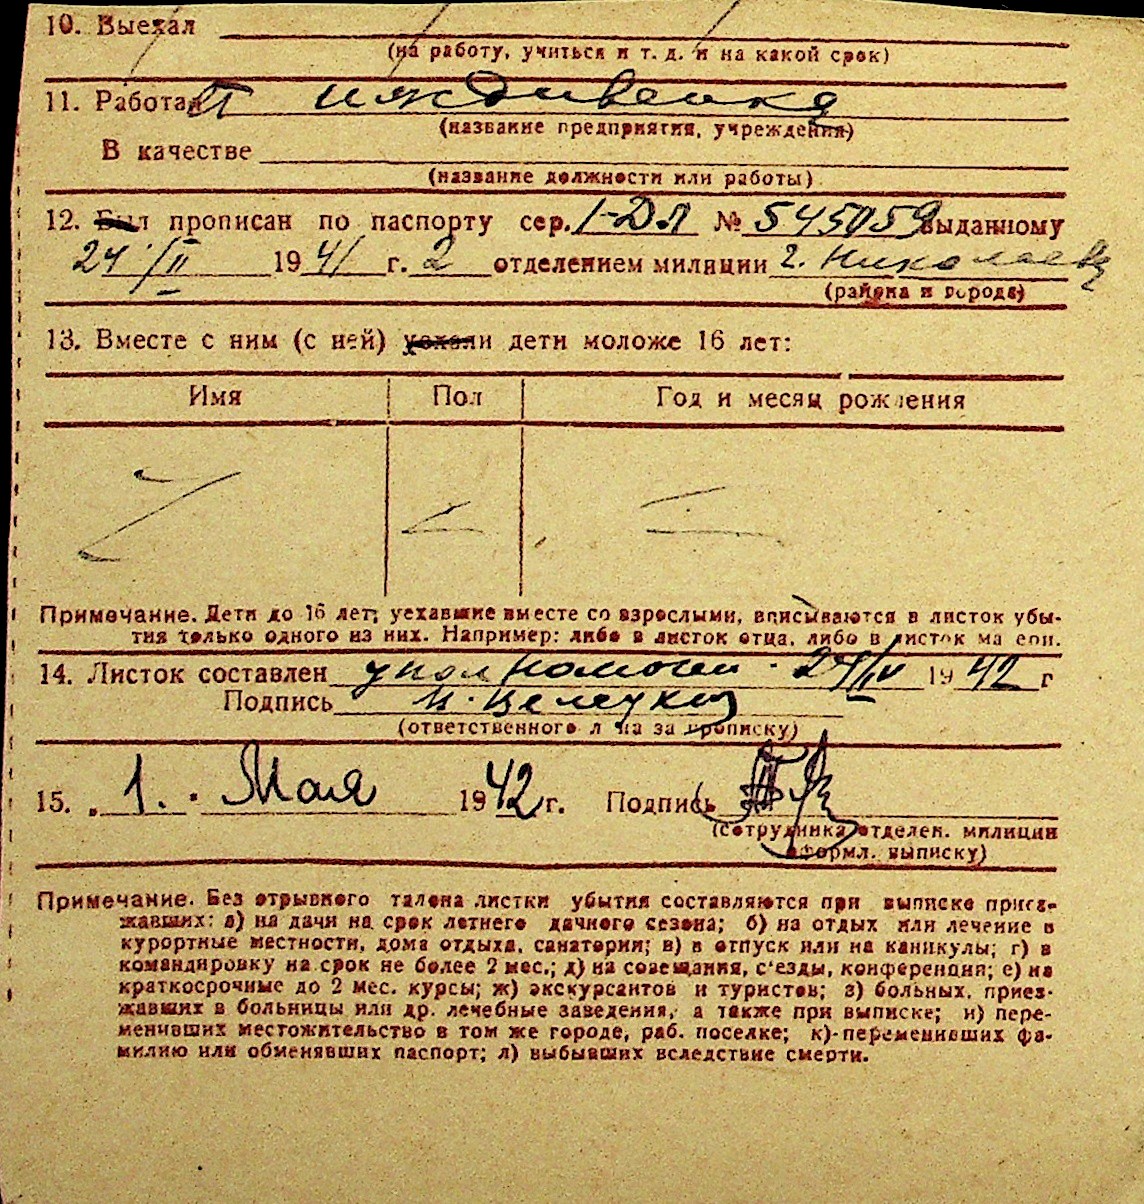 10. Выехал
(на работу, учиться и т. д. и на какой срок)
11. Работает иждивенка
(название предприятия, учреждения)
В качестве
(название должности или работы)
12. Был прописан по паспорту сер. I-ДЛ № 545059 выданному
24/II 1941 г. 2 отделением милиции г. Николаев
(района и города)
13. Вместе с ним (с ней) уехали дети моложе 16 лет:
Имя Пол Год и месяц рождения
Примечание. Дети до 16 лет, уехавшие вместе со взрослыми, вписываются в листок убы-
тия только одного из них. Например: либо в листок отца, либо в листок матери.
14. Листок составлен 24/IV 1942 г
Подпись
(ответственного лица за прописку)
15. „1." Мая 1942 г. Подпись
(сотрудника отделен. милиции
оформл. выписку)
Примечание. Без отрывного талона листки убытия составляются при выписке приез-
жавших: а) на дачи на срок летнего дачного сезона; б) на отдых или лечение в
курортные местности, дома отдыха, санатории; в) в отпуск или на каникулы; г) в
командировку на срок не более 2 мес.; д) на совещания, с'езды, конференции; е) на
краткосрочные до 2 мес. курсы; ж) экскурсантов и туристов; з) больных, приез-
жавших в больницы или др. лечебные заведения, а также при выписке; и) пере-
менивших местожительство в том же городе, раб. поселке; к) переменивших фа-
милию или обменявших паспорт; л) выбывших вследствие смерти.